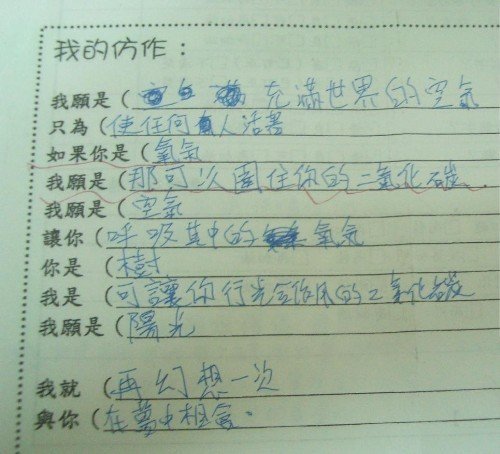 我的仿作：
我願是（充滿世界的空氣
只為（使任何人活著
如果你是（氧氣
我願是（那可以圍住你的二氧化碳
我願是（空氣
讓你（呼吸其中的氧氣
你是（樹
我是（可讓你行光合作用的二氧化碳
我願是（陽光
我就（再幻想一次
與你（在夢中相會。